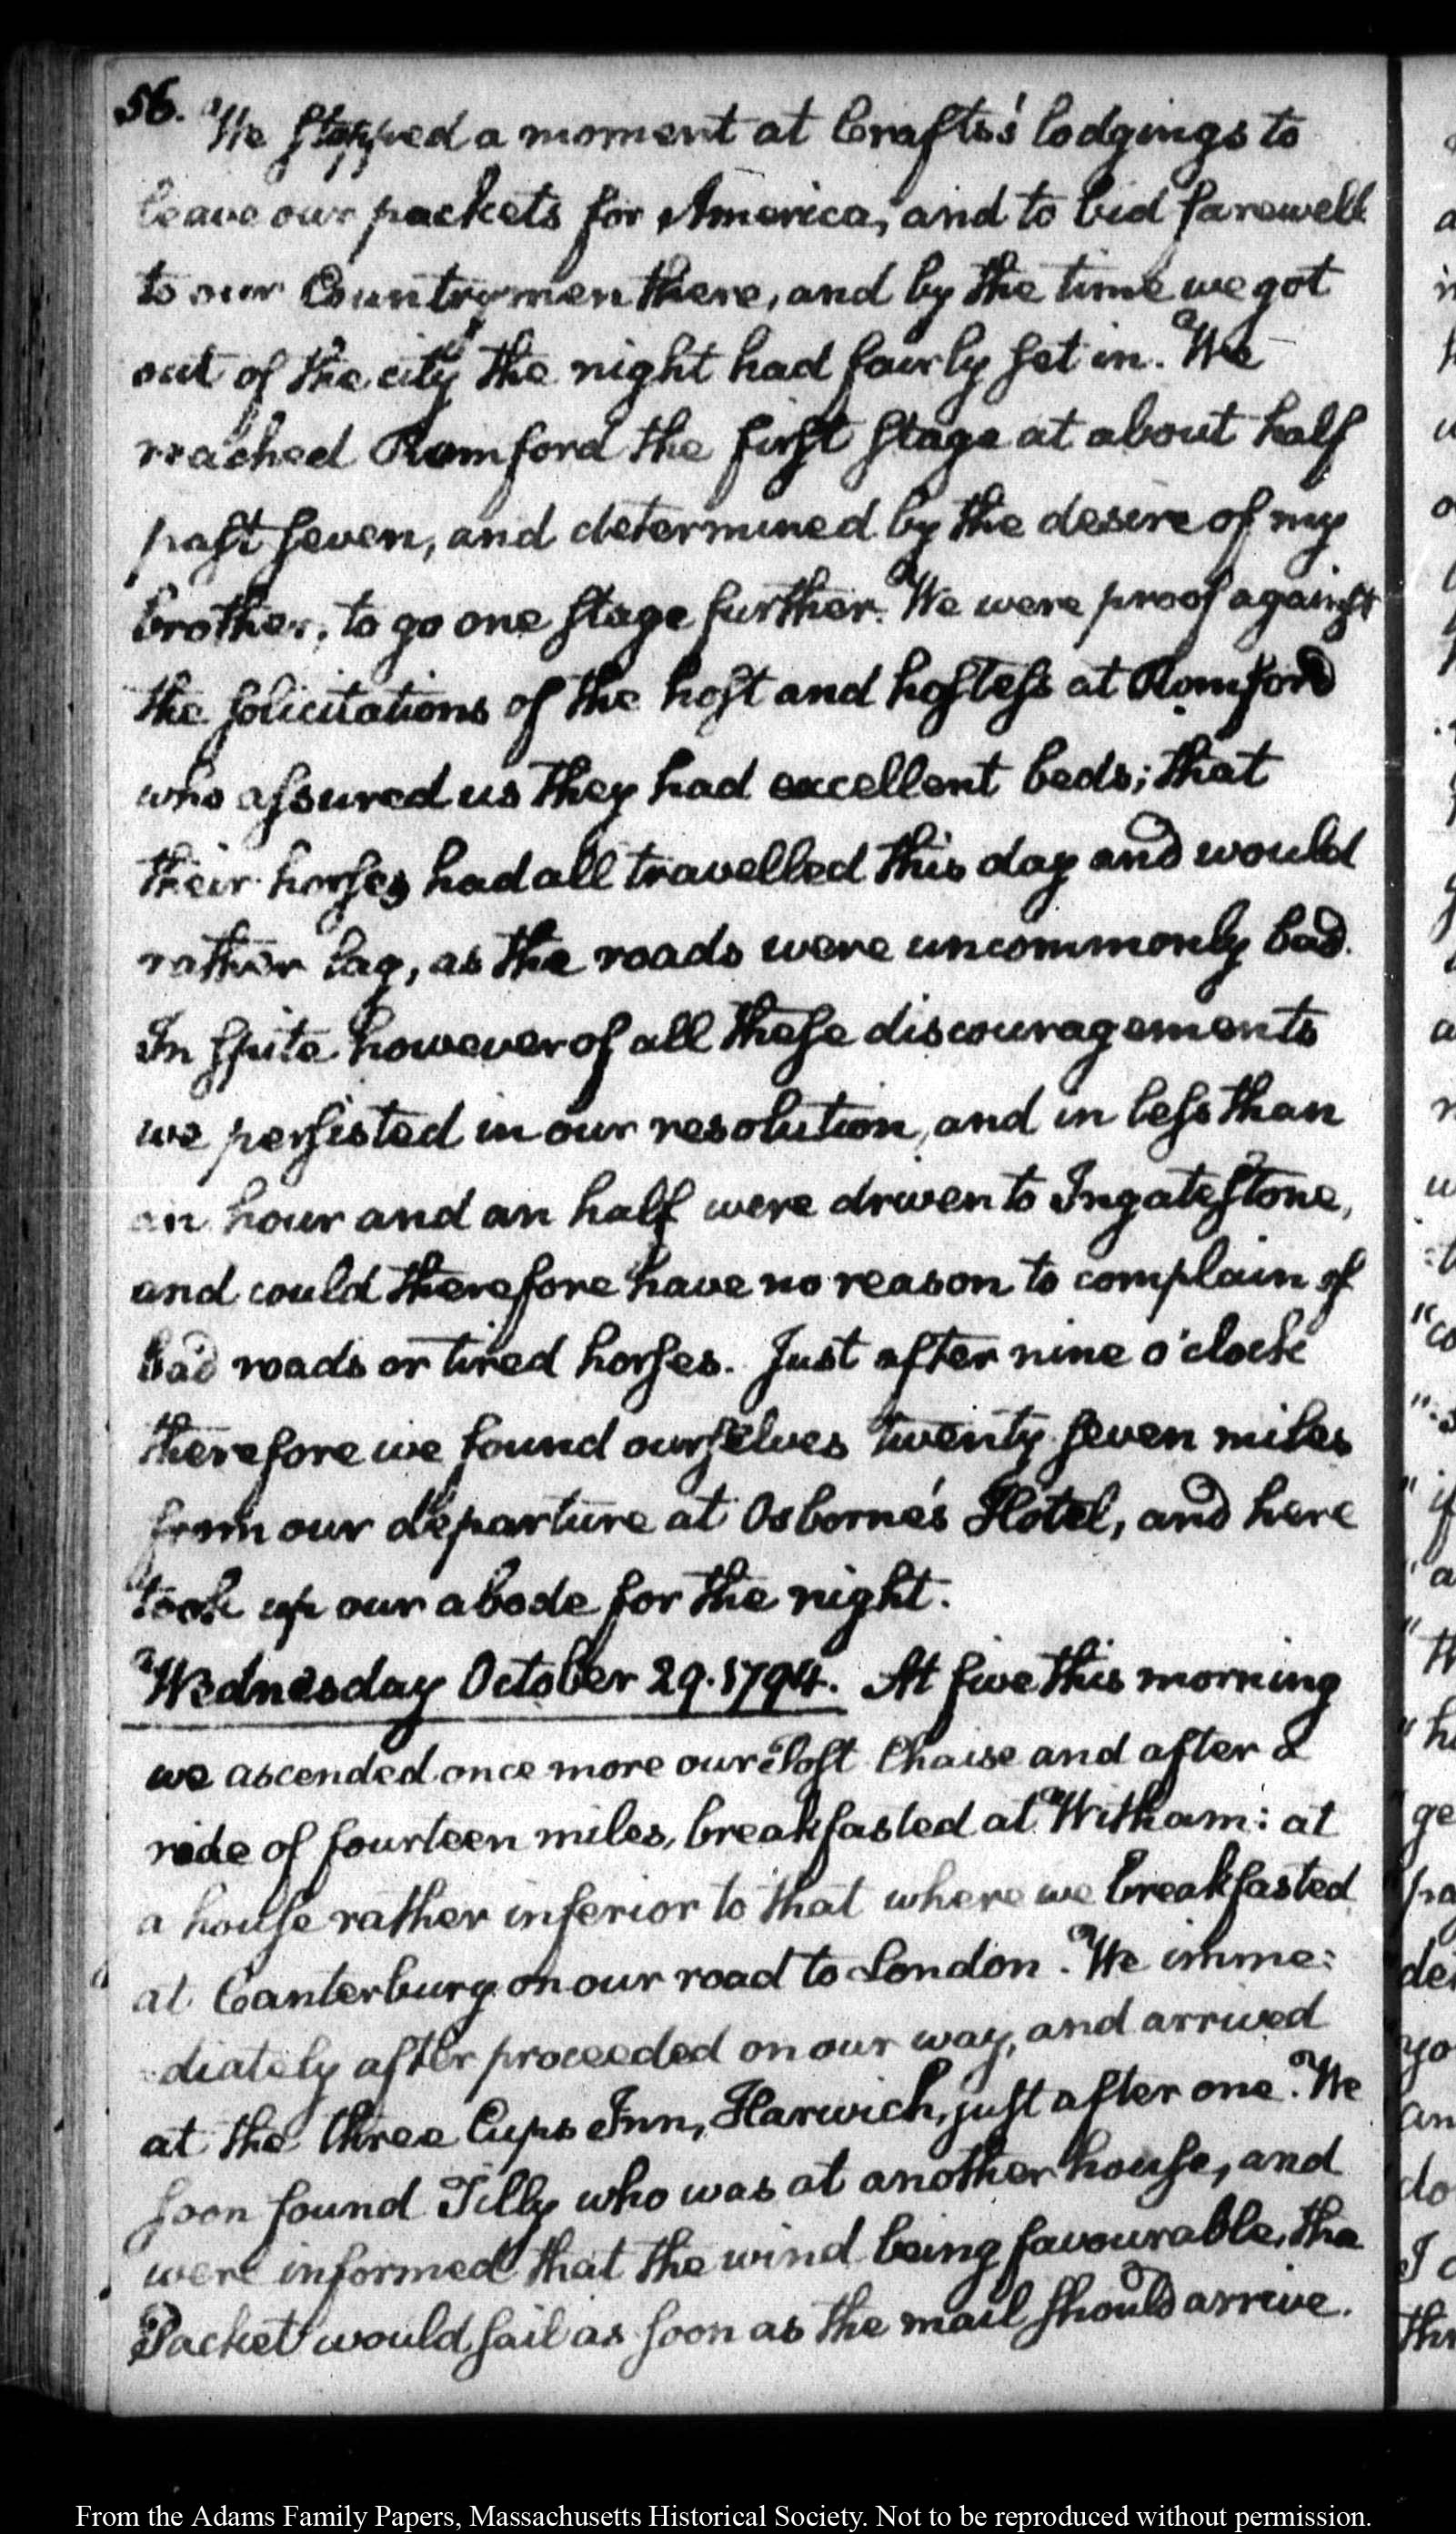 56. We stopped a moment at Crafts's lodgings to
leave our packets for America, and to bid farewell
to our Countrymen there, and by the time we got
out of the city the night had fairly set in. We
reached Romford the first stage at about half
past seven, and determined by the desire of my
brother, to go one stage further. We were proof against
the solicitations of the host and hostess at Romford
who assured us they had excellent beds; that
their horses had all travelled this day and would
rather lag, as the roads were uncommonly bad.
In spite however of all these discouragements
we persisted in our resolution, and in less than
an hour and an half were driven to Ingatestone,
and could therefore have no reason to complain of
bad roads or tired horses. Just after nine o'clock
therefore we found ourselves twenty seven miles
from our departure at Osborne's Hotel, and here
took up our abode for the night.
Wednesday October 29. 1794. At five this morning
we ascended once more our Post Chaise and after a
ride of fourteen miles, breakfasted at Witham: at
a house rather inferior to that where we breakfasted
at Canterbury on our road to London. We imme:
:diately after proceeded on our way, and arrived
at the three Cups Inn, Harwich, just after one. We
soon found Tilly who was at another house, and
were informed that the wind being favourable, the
Packet would sail as soon as the mail should arrive.
From the Adams Family Papers, Massachusetts Historical Society. Not to be reproduced without permission.